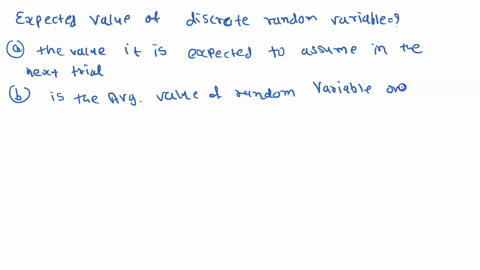 Expected value of discrete random variable=?
(a) the value it is expected to assume in the
next trial
(b) is the Avg. value of random Variable ove